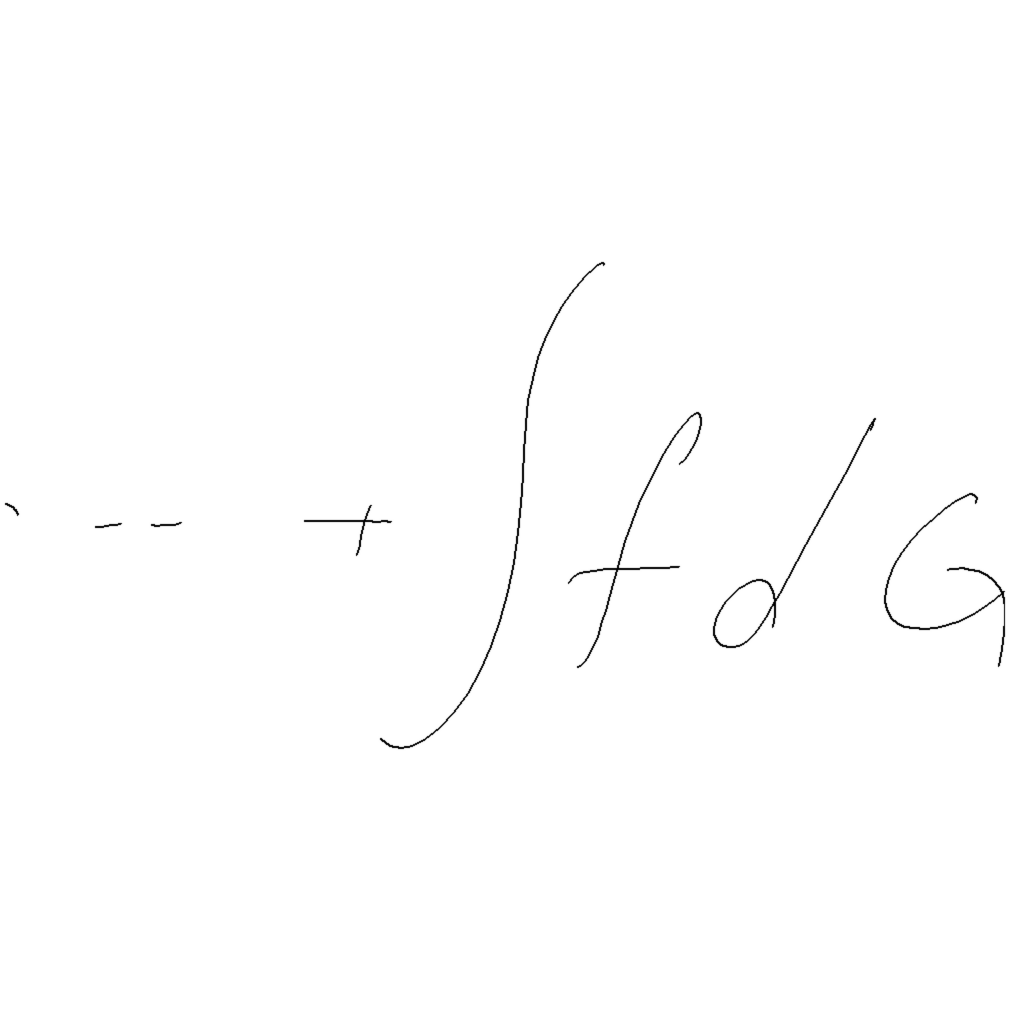 . - - + ∫ f d G